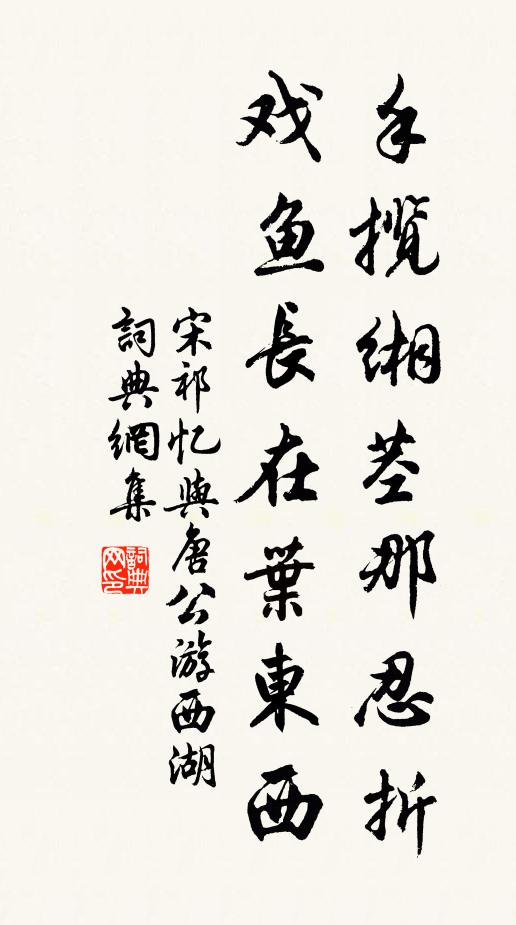 手揽缃茎那忍折
戏鱼長在葉東西
宋祁忆與唐公游西湖
詞典網集
詞典网印